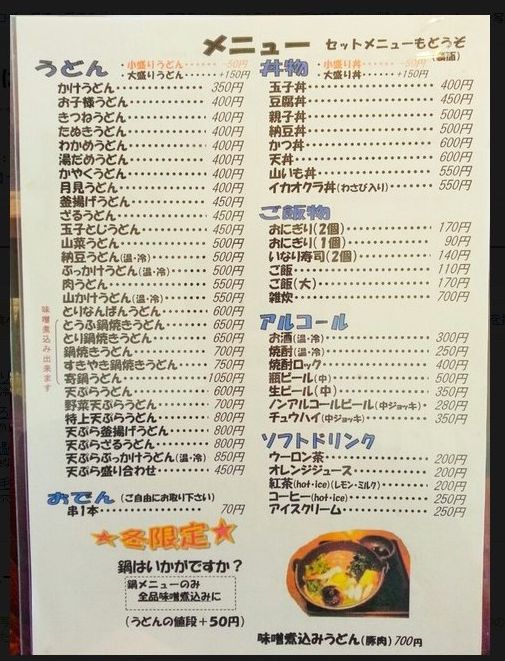 メニュー セットメニューもどうぞ
うどん
・小盛りうどん・・・・・・ −50円
・大盛りうどん・・・・・・ +150円
かけうどん・・・・・・ 350円
お子様うどん・・・・・・ 400円
きつねうどん・・・・・・ 400円
たぬきうどん・・・・・・ 400円
わかめうどん・・・・・・ 400円
湯だめうどん・・・・・・ 400円
かやくうどん・・・・・・ 400円
月見うどん・・・・・・ 400円
釜揚げうどん・・・・・・ 450円
ざるうどん・・・・・・ 450円
玉子とじうどん・・・・・・ 450円
山菜うどん・・・・・・ 500円
納豆うどん(温・冷)・・・・・・ 500円
ぶっかけうどん(温・冷)・・・ 500円
肉うどん・・・・・・ 550円
山かけうどん(温・冷)・・・・・・ 550円
とりなんばんうどん・・・・・・ 600円
味噌煮込み出来ます
とうふ鍋焼きうどん・・・・・・ 650円
とり鍋焼きうどん・・・・・・ 650円
鍋焼きうどん・・・・・・ 700円
すきやき鍋焼きうどん・・・・・・ 750円
寄鍋うどん・・・・・・ 1050円
天ぷらうどん・・・・・・ 600円
野菜天ぷらうどん・・・・・・ 700円
特上天ぷらうどん・・・・・・ 800円
天ぷら釜揚げうどん・・・・・・ 800円
天ぷらざるうどん・・・・・・ 800円
天ぷらぶっかけうどん(温・冷) 850円
天ぷら盛り合わせ・・・・・・ 450円
おでん (ご自由にお取り下さい)
串1本・・・・・・ 70円
★冬限定★
鍋はいかがですか？
鍋メニューのみ
全品味噌煮込みに
(うどんの値段+50円)
丼物
・小盛り丼・・・・・・ −50円
・大盛り丼・・・・・・ +150円
玉子丼・・・・・・ 400円
豆腐丼・・・・・・ 450円
親子丼・・・・・・ 500円
納豆丼・・・・・・ 500円
かつ丼・・・・・・ 600円
天丼・・・・・・ 600円
山いも丼・・・・・・ 550円
イカオクラ丼(わさび入り)・・・・・・ 550円
ご飯物
おにぎり(2個)・・・・・・ 170円
おにぎり(1個)・・・・・・ 90円
いなり寿司(2個)・・・・・・ 140円
ご飯・・・・・・ 110円
ご飯(大)・・・・・・ 170円
雑炊・・・・・・ 700円
アルコール
お酒(温・冷)・・・・・・ 300円
焼酎(温・冷)・・・・・・ 250円
焼酎ロック・・・・・・ 400円
瓶ビール(中)・・・・・・ 500円
生ビール(中)・・・・・・ 350円
ノンアルコールビール(中ジョッキ)・ 280円
チュウハイ(中ジョッキ)・・・・・・ 350円
ソフトドリンク
ウーロン茶・・・・・・ 200円
オレンジジュース・・・・・・ 200円
紅茶(hot・ice)(レモン・ミルク)・・・・・・ 200円
コーヒー(hot・ice)・・・・・・ 250円
アイスクリーム・・・・・・ 250円
味噌煮込みうどん(豚肉)700円